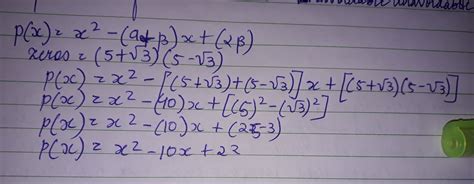 p(x) = x² - (α+β)x + (αβ)
zeros = (5+√3)(5-√3)
p(x) = x² - [(5+√3)+(5-√3)]x + [(5+√3)(5-√3)]
p(x) = x² - (10)x + [(5)² - (√3)²]
p(x) = x² - (10)x + (25-3)
p(x) = x² - 10x + 22